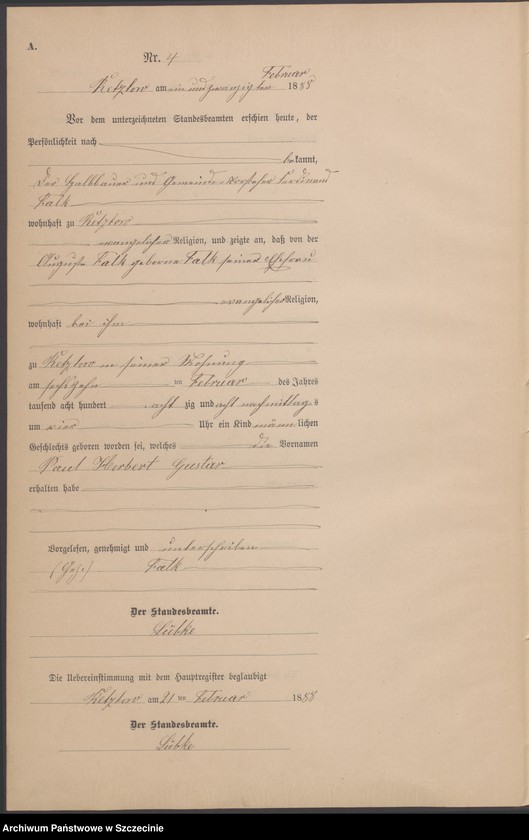 A.
Nr. 4
Februar
Retzlow am ein und zwanzigten 1888
Vor dem unterzeichneten Standesbeamten erschien heute, der
Persönlichkeit nach
bekannt,
Der Halbbauer und Gemeindevorsteher Ferdinand
Falk
wohnhaft zu Retzlow
evangelischer Religion, und zeigte an, daß von der
Auguste Falk geborne Falk seiner Ehefrau
evangelischer Religion,
wohnhaft bei ihm
zu Retzlow in seiner Wohnung
am sechzehn ten Februar des Jahres
tausend acht hundert acht zig und acht nachmittags
um vier Uhr ein Kind männlichen
Geschlechts geboren worden sei, welches die Vornamen
Paul Herbert Gustav
erhalten habe
Vorgelesen, genehmigt und unterschrieben
(Gez.) Falk
Der Standesbeamte.
Lübke
Die Uebereinstimmung mit dem Hauptregister beglaubigt
Retzlow am 21 ten Februar 1888
Der Standesbeamte.
Lübke
Archiwum Państwowe w Szczecinie